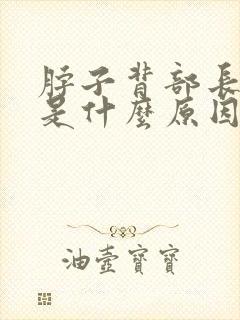 脖子背部長
是什麼原因
油壺寶寶